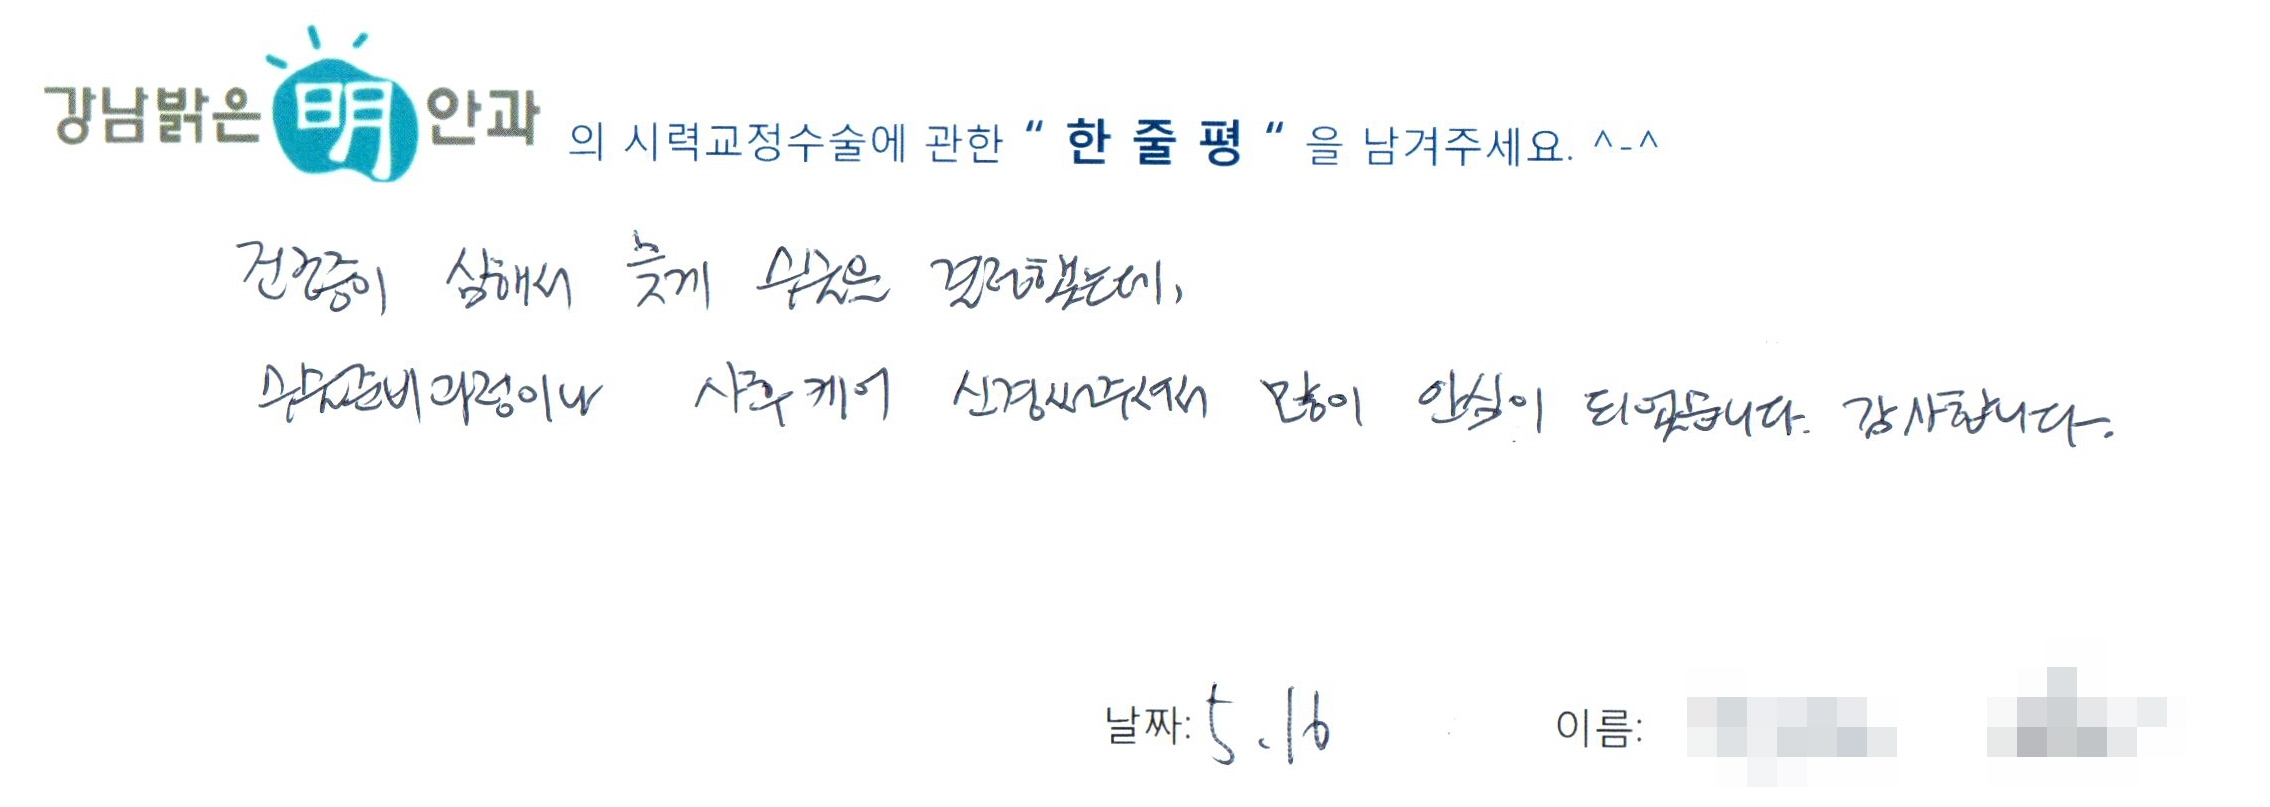 강남밝은 明 안과 의 시력교정수술에 관한 “ 한 줄 평 “ 을 남겨주세요. ^-^
건조증이 심해서 늦게 수술을 결정했는데,
수술준비과정이나 사후케어 신경써주셔서 많이 안심이 되었습니다. 감사합니다.
날짜: 5.16 이름: